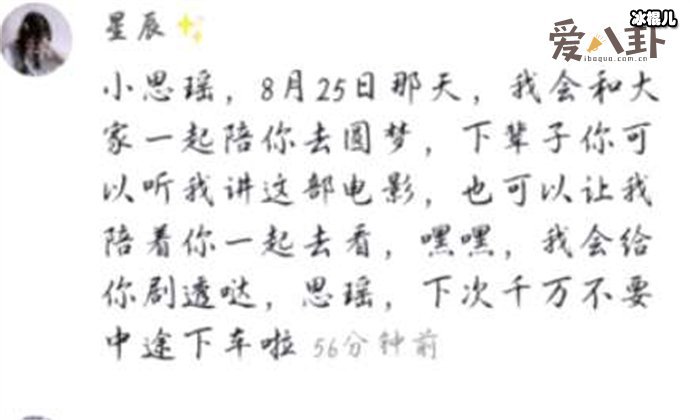 冰棍儿
爱八卦
ibagua.com.cn
星辰✨
小思瑶，8月25日那天，我会和大
家一起陪你去圆梦，下辈子你可
以听我讲这部电影，也可以让我
陪着你一起去看，嘿嘿，我会给
你剧透哒，思瑶，下次千万不要
中途下车啦 56分钟前